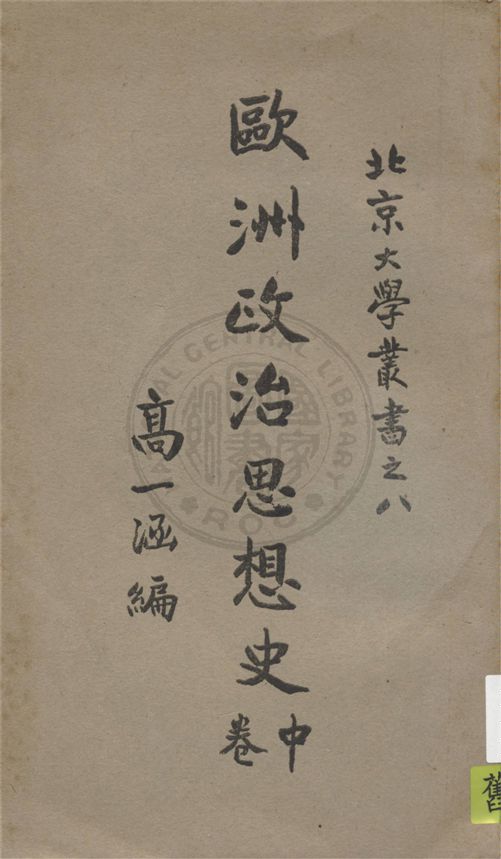 北京大學叢書之八
歐洲政治思想史
中卷
高一涵編
NATIONAL CENTRAL LIBRARY
R.O.C
舊